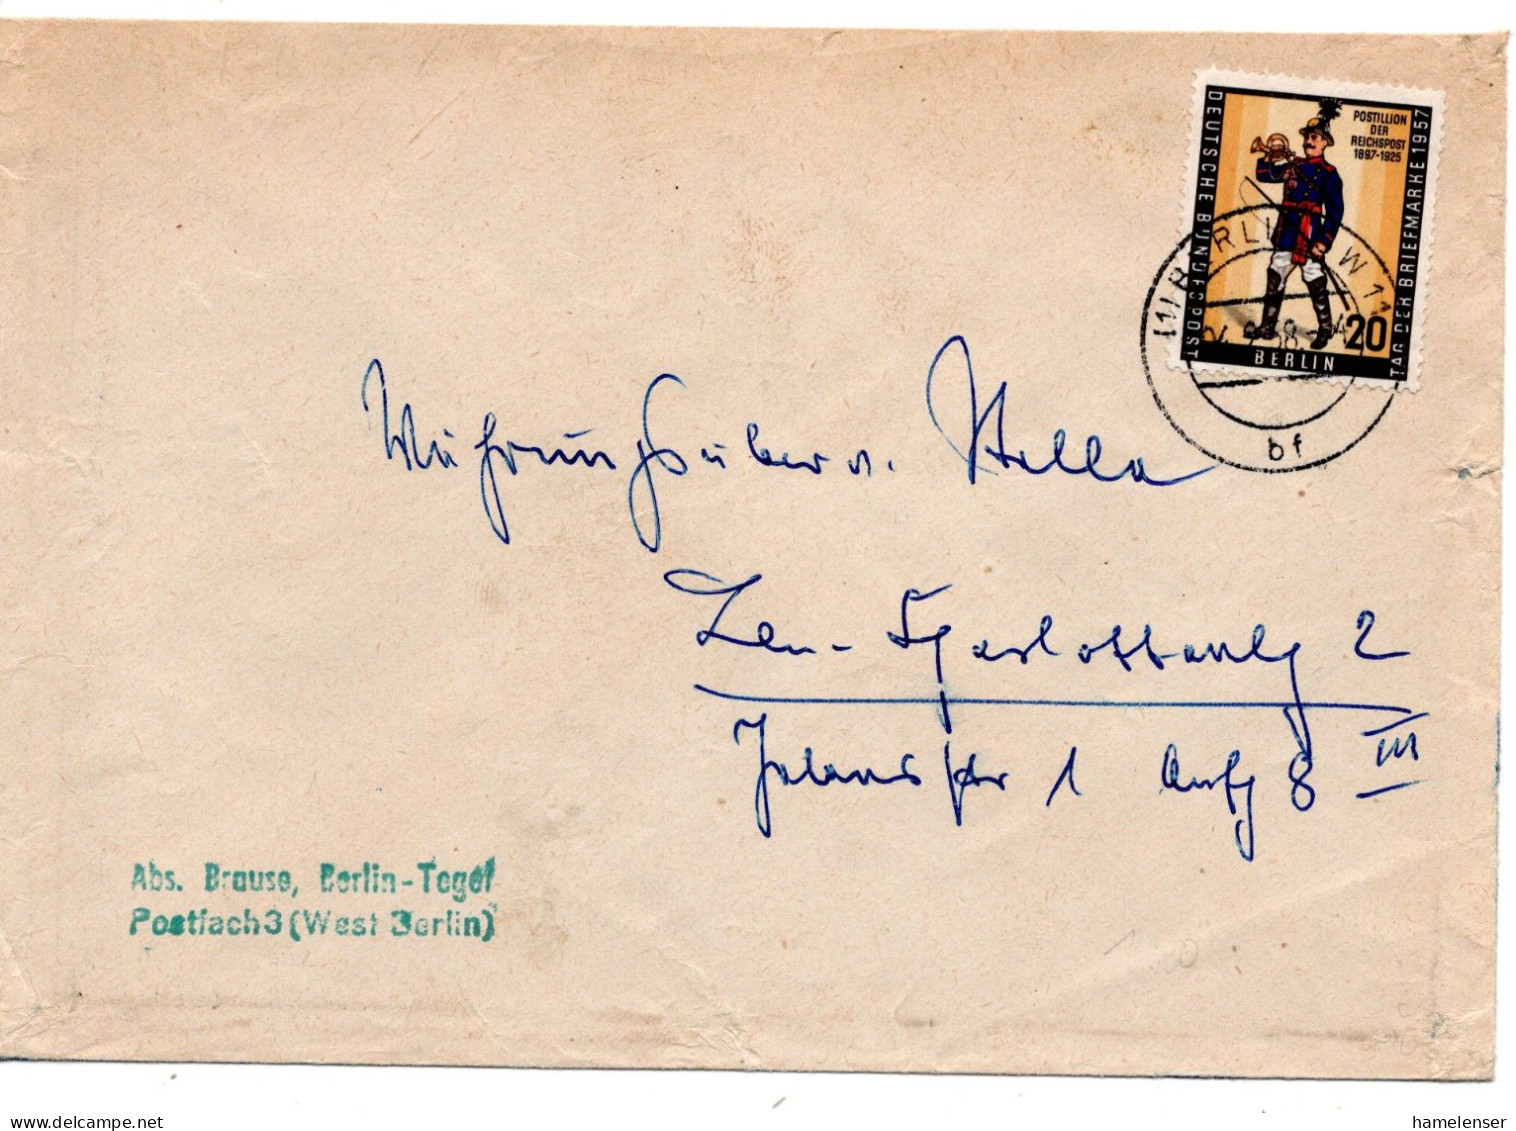 DEUTSCHE BUNDESPOST
POSTILLION
DER
REICHSPOST
1897-1925
TAG DER BRIEFMARKE 1957
20
BERLIN
(1) BERLIN SW 11
bf
Währungsüberw. Stelle
Bln-Charlottenbg 2
1 Aufg 8 III
Abs. Brause, Berlin-Tegel
Postfach 3 (West Berlin)
www.delcampe.net
hamelenser